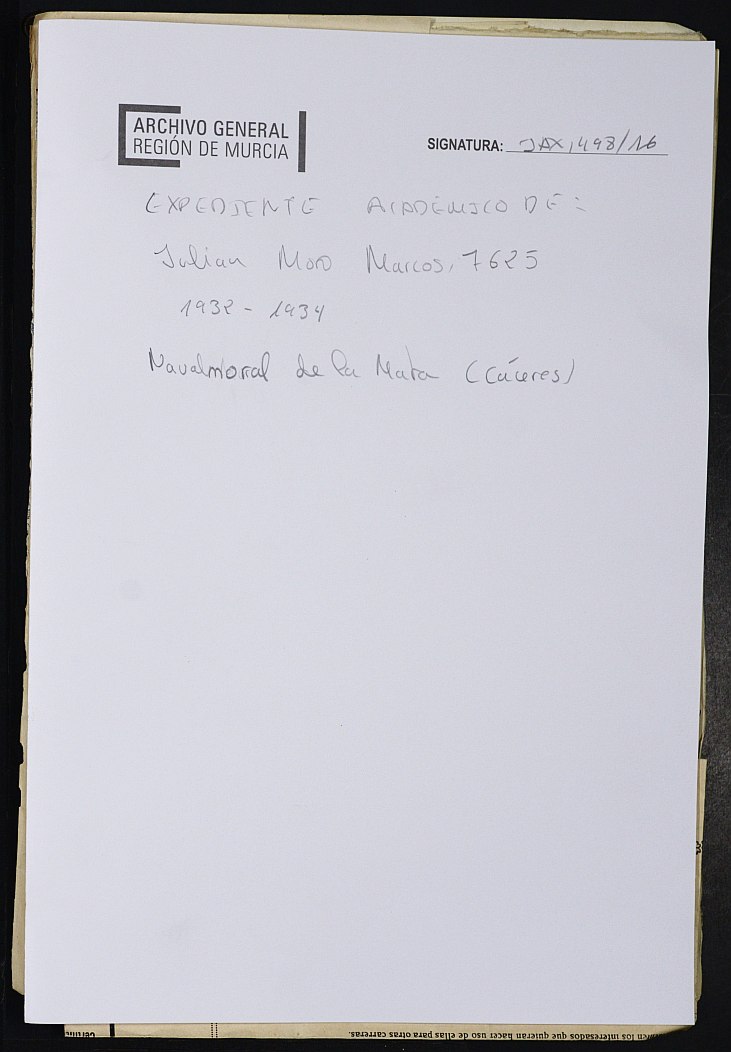 ARCHIVO GENERAL
REGIÓN DE MURCIA
SIGNATURA: JAX, 498/16
EXPEDIENTE ACADÉMICO DE:
Julian Moro Marcos, 7625
1932 - 1934
Navalmoral de la Mata (Cáceres)
en los interesados que quieran hacer uso de ellas para otras carreras.